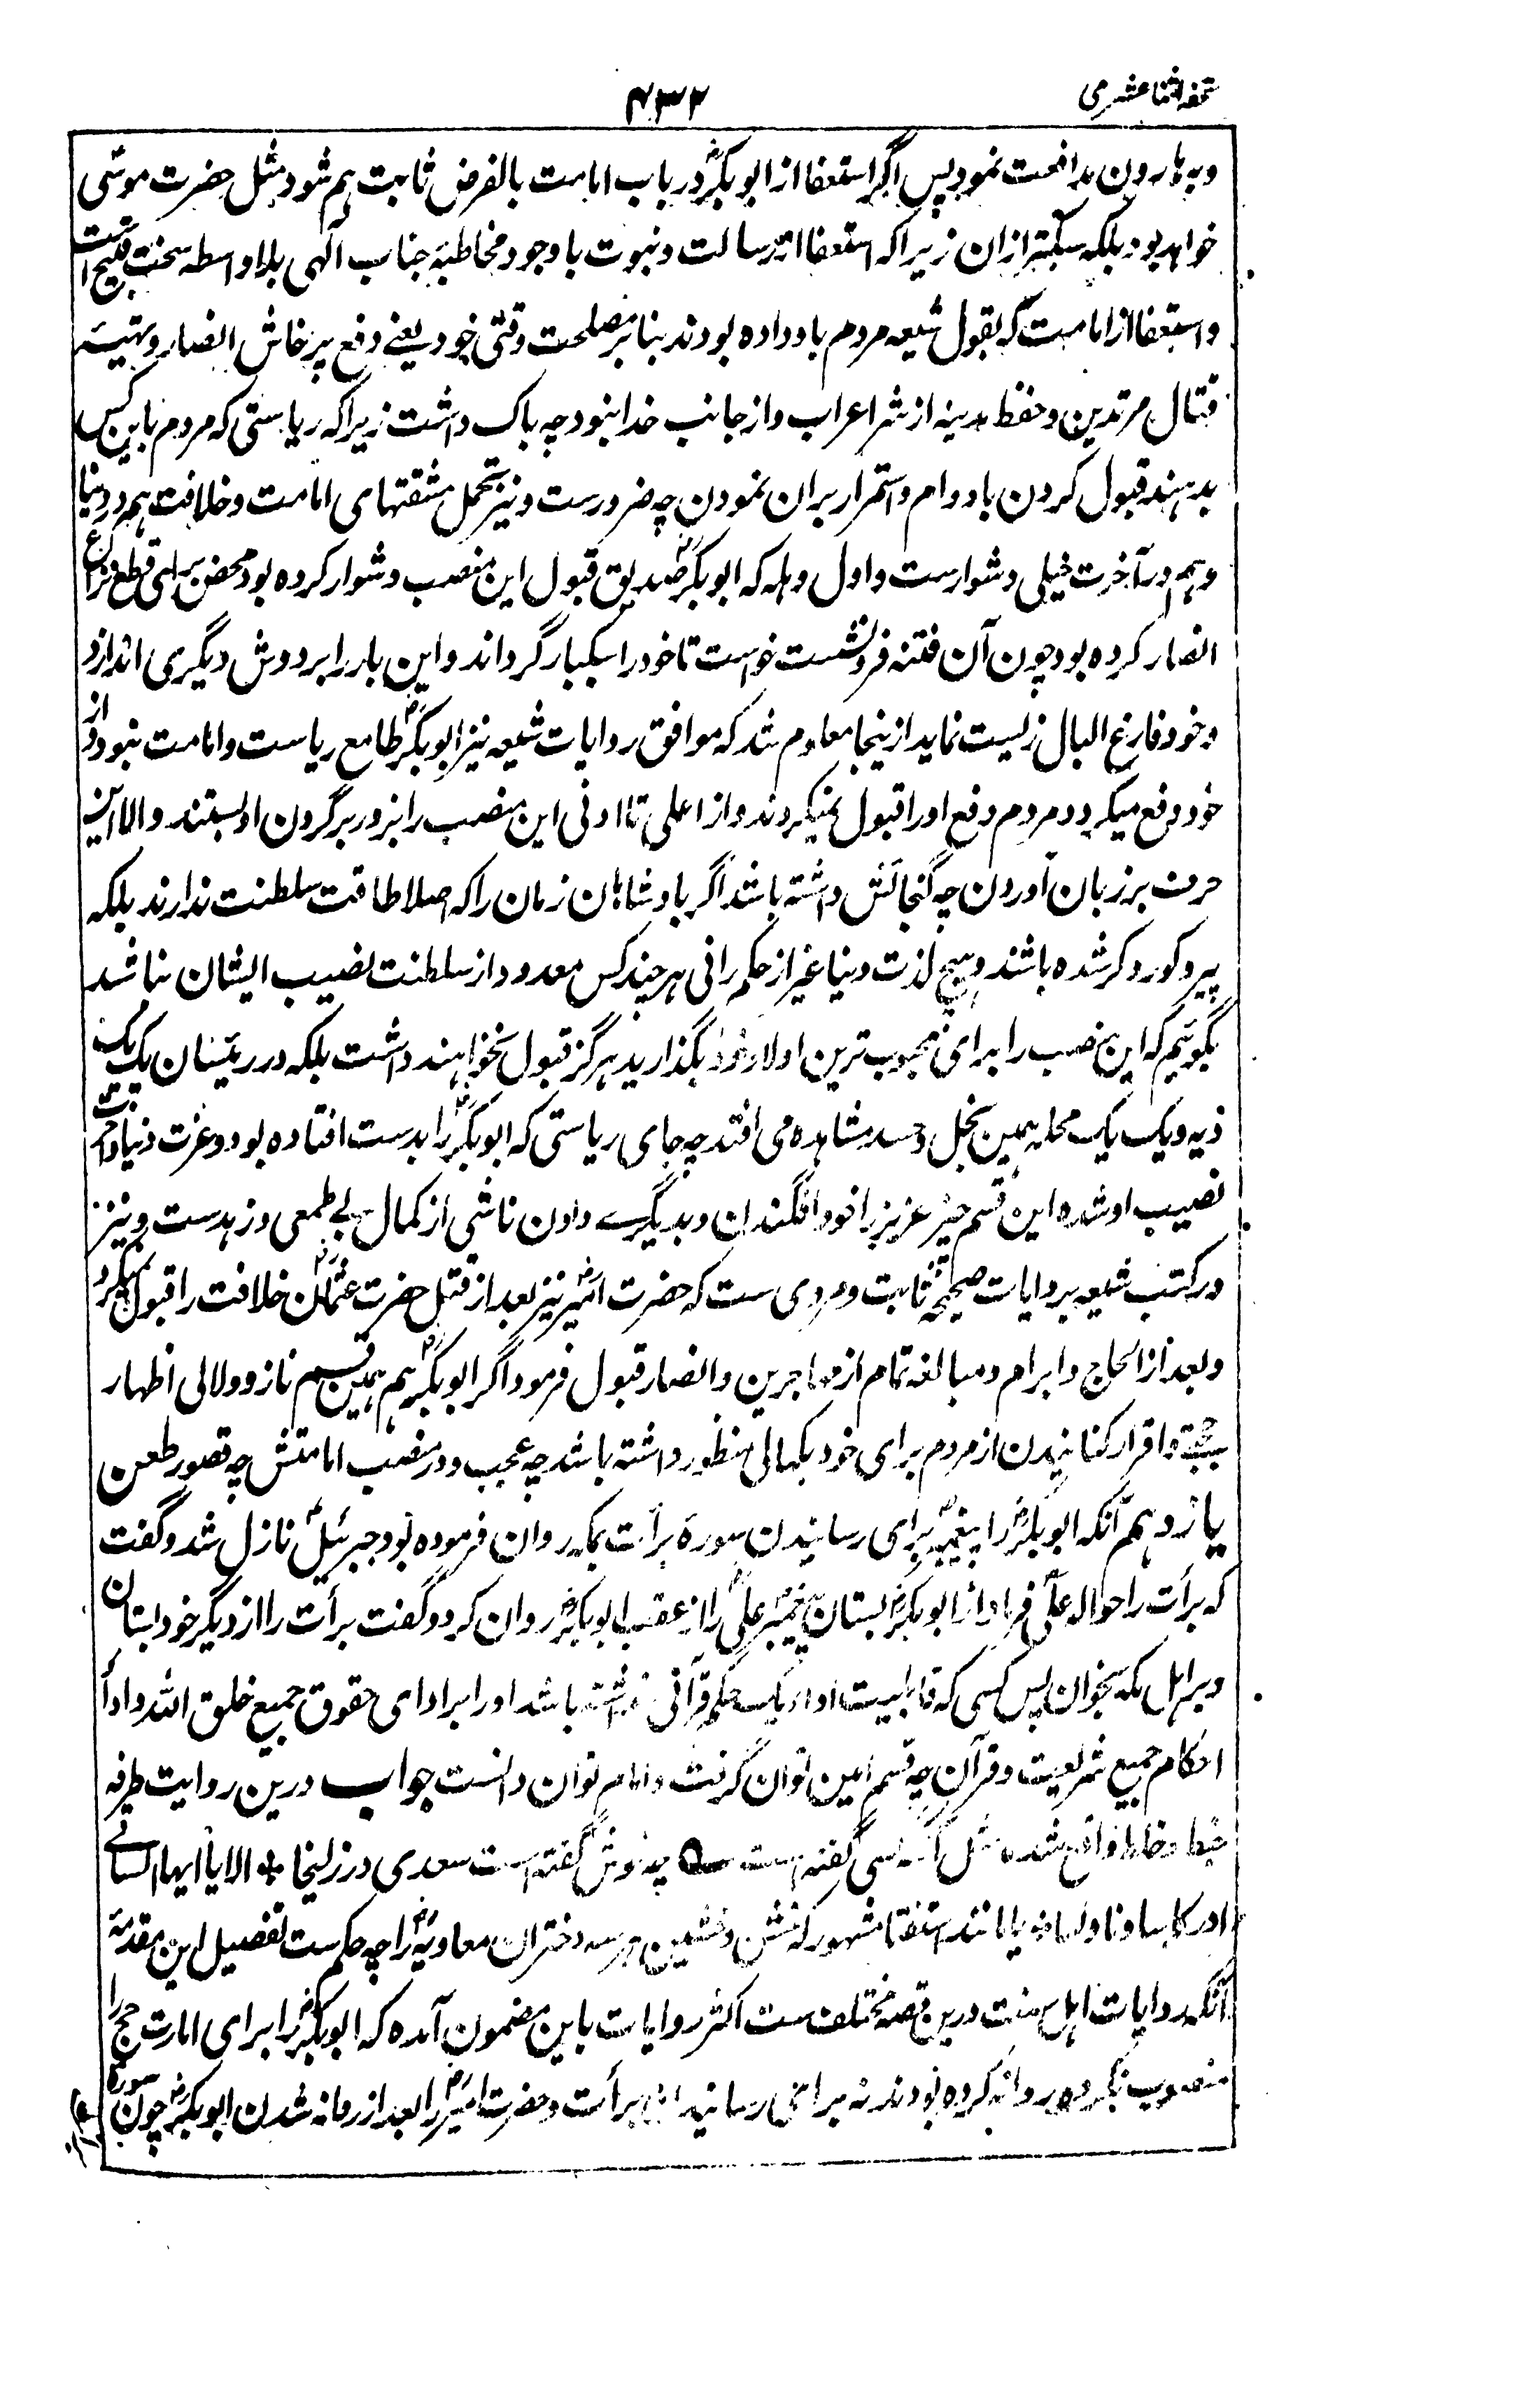 تحفه اثنا عشری
۴۳۲
وبه هارون مدافعت نمود پس اگر استعفا از ابو بکرؓ در باب امامت بالفرض ثابت هم شود مثل حضرت موسٰی
خواهد بود بلکه سبکتر ازان زیرا که استعفا از رسالت و نبوت با وجود مخاطبهٔ جناب الٓهی بلا واسطه سخت قبیح است
و استعفا از امامت که بقول شیعه مردم باو داده بودند بنا بر مصلحت وقتی خود یعنے دفع پرخاش انصار و تهیئه
قتال مرتدین و حفظ مدینه از شر اعراب و از جانب خدا نبود چه باک داشت زیرا که ریاستی که مردم باین کس
بدهند قبول کردن با دوام و استمرار بران نمودن چه ضرورست و نیز تحمل مشقتهای امامت و خلافت هم در دنیا
و هم در آخرت خیلی دشوارست و اول وهله که ابو بکرؓ صدیق قبول این منصب دشوار کرده بود محض برای قطع نزاع
انصار کرده بود چون آن فتنه فرونشست خواست تا خود را سبکبار گرداند و این بار را بر دوش دیگری اندازد
و خود فارغ البال زیست نماید ازینجا معلوم شد که موافق روایات شیعه نیز ابو بکرؓ طامع ریاست و امامت نبود و از
خود دفع میکرد و مردم دفع او را قبول نمیکردند و از اعلی تا ادنی این منصب را بزور بر گردن او بستند و الا این
حرف بر زبان آوردن چه گنجائش داشته باشد اگر بادشاهان زمان را که اصلا طاقت سلطنت ندارند بلکه
پیر و کور و کر شده باشند و هیچ لذت دنیا غیر از حکم رانی هر چند کس معدود از سلطنت نصیب ایشان نباشد
بگوئیم که این منصب را برای محبوب ترین اولاد خود بگذارید هرگز قبول نخواهند داشت بلکه در رئیسان یک یک
دیه و یک یک محله همین بخل و حسد مشاهده می افتد چه جای ریاستی که ابو بکرؓ را بدست افتاده بود و عزت دنیا و آخرت
نصیب او شده این قسم چیز عزیز را خود افگندن و بدیگرے دادن ناشی از کمال بے طمعی و زهدست و نیز
در کتب شیعه بروایات صحیحه ثابت و مروی ست که حضرت امیرؓ نیز بعد از قتل حضرت عثمانؓ خلافت را قبول نمیکرد
و بعد از الحاح و ابرام و مبالغه تمام از مهاجرین و انصار قبول فرمود اگر ابو بکرؓ هم همین قسم ناز و ولالی اظهار
و اقرار کنانیدن از مردم برای خود بکمالی منظور داشته باشد چه عجب و در منصب امامتش چه قصور طعن
یازدهم آنکه ابو بکرؓ را پیغمبرؐ برای رسانیدن سورهٔ برأت بمکه روان فرموده بود جبرئیلؑ نازل شد و گفت
که برأت را حواله علیؓ فرما و از ابو بکرؓ بستان پیغمبرؐ علیؓ را از عقب ابو بکرؓ روان کرد و گفت برأت را از دیگر خود بستان
و بر اهل مکه بخوان پس کسی که قابلیت اداء یک حکم قرآنی نداشته باشد او را بر ادای حقوق جمیع خلق الله و ادأ
احکام جمیع شریعت و قرآن چه قسم امین توان گرفت و امام توان دانست جواب درین روایت طرفه
خبط و خلط واقع شده مثل آنکه کسی گفته است چه خوش گفته است سعدی در زلیخا * الا یا ایها الساقے
ادر کاسا و ناولها * یا مانند استفتا مشهور که خشن و خشین هر سه دختران معاویهؓ را چه حکم ست تفصیل این مقدمه
آنکه روایات اهل سنت درین قصه مختلف ست اکثر روایات باین مضمون آمده که ابو بکرؓ را برای امارت حج
منصوب نموده روانه کرده بودند نه برای رسانیدن برأت و حضرت امیرؓ را بعد از روانه شدن ابو بکرؓ چون سوره